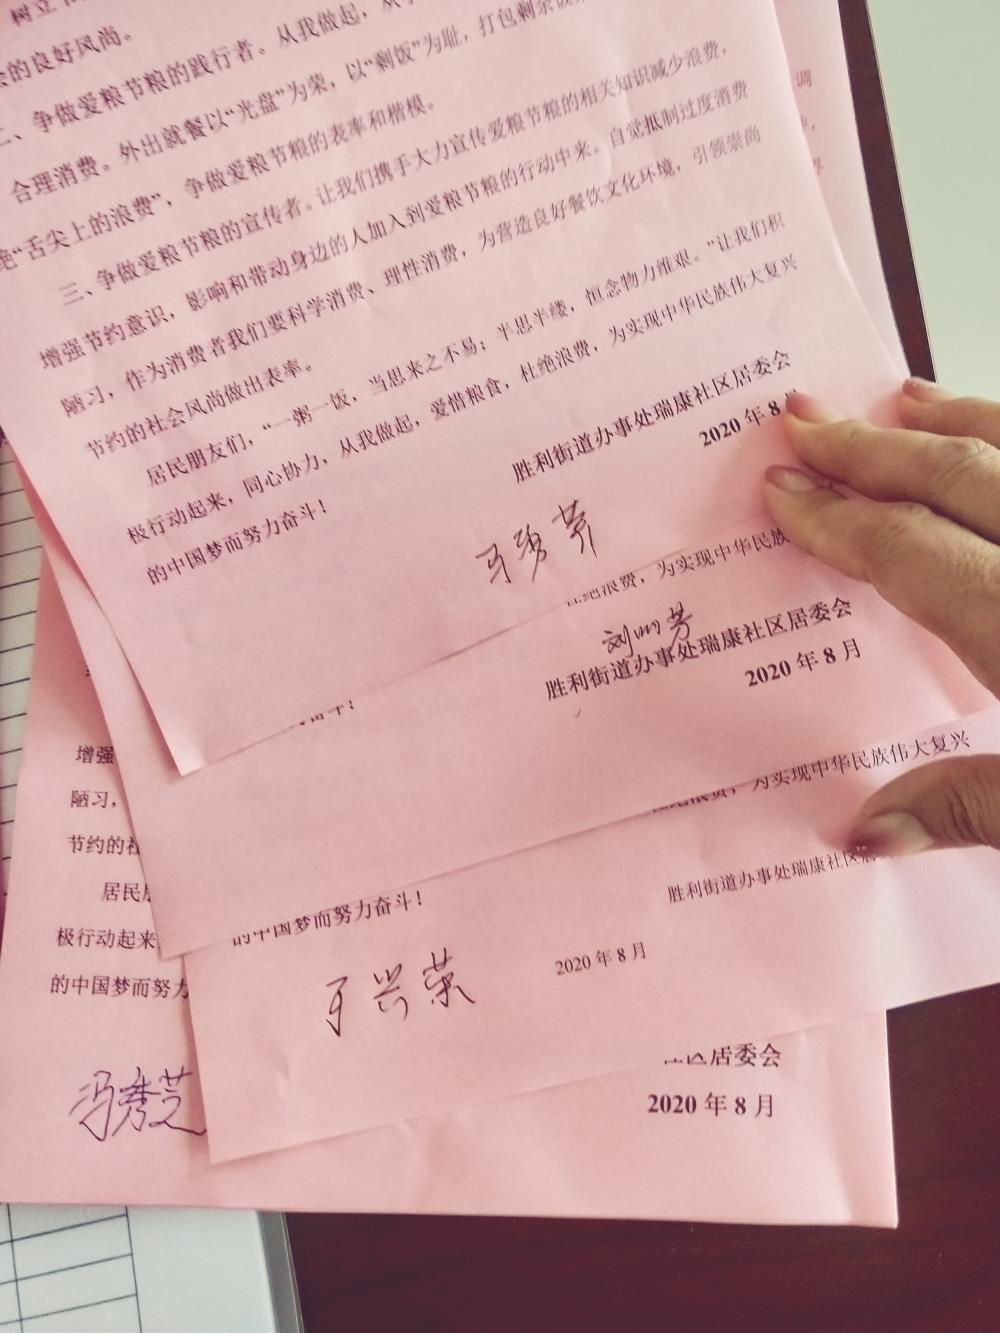 树立
会的良好风尚。
二、争做爱粮节粮的践行者。从我做起，从
合理消费。外出就餐以“光盘”为荣，以“剩饭”为耻，打包剩余饭
绝“舌尖上的浪费”，争做爱粮节粮的表率和楷模。
三、争做爱粮节粮的宣传者。让我们携手大力宣传爱粮节粮的相关知识减少浪费，
增强节约意识，影响和带动身边的人加入到爱粮节粮的行动中来。自觉抵制过度消费
陋习，作为消费者我们要科学消费、理性消费，为营造良好餐饮文化环境，引领崇尚
节约的社会风尚做出表率。
居民朋友们，“一粥一饭，当思来之不易；半思半缕，恒念物力维艰。”让我们积
极行动起来，同心协力，从我做起，爱惜粮食，杜绝浪费，为实现中华民族伟大复兴
的中国梦而努力奋斗！
胜利街道办事处瑞康社区居委会
2020年8
杜绝浪费，为实现中华民族
刘明芳
胜利街道办事处瑞康社区居委会
2020年8月
奋斗！
杜绝浪费，为实现中华民族伟大复兴
的中国梦而努力奋斗！
胜利街道办事处瑞康社区居
于兴荣
2020年8月
增强
陋习，
节约的社
居民朋
极行动起来
的中国梦而努力
冯秀芝
社区居委会
2020年8月